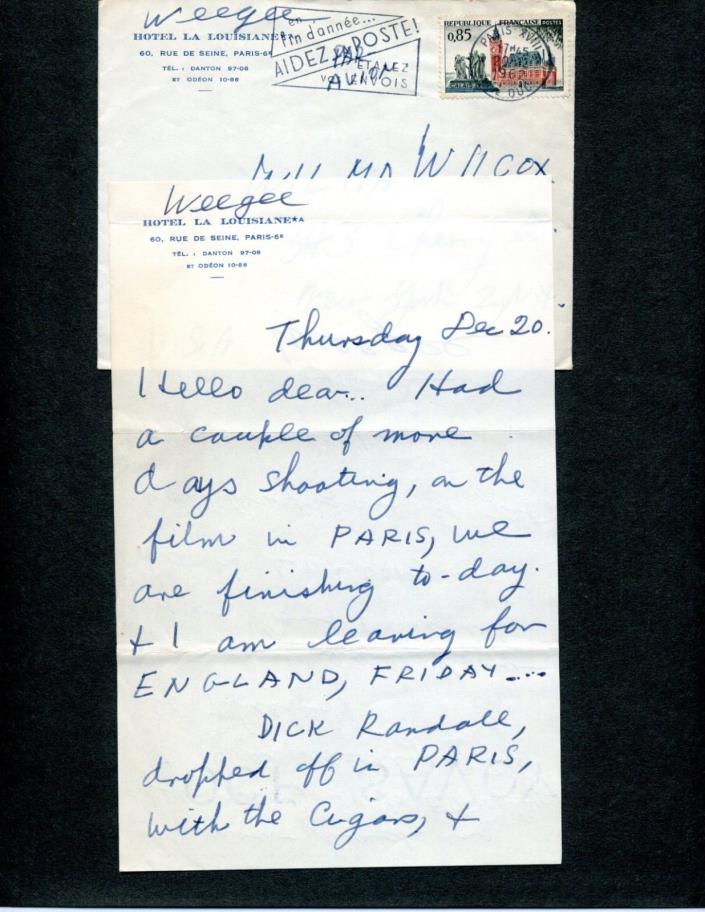 Weegee
HOTEL LA LOUISIANE★A
60, RUE DE SEINE, PARIS-6ᴱ
TÉL. : DANTON 97-08
ET ODÉON 10-86
en
fin d'année...
AIDEZ LA POSTE!
ÉTALEZ
VOS ENVOIS
PAR
AVION
RÉPUBLIQUE FRANÇAISE POSTES
0,85
CALAIS
PARIS XVII
WILCOX
Weegee
HOTEL LA LOUISIANE★A
60, RUE DE SEINE, PARIS-6ᴱ
TÉL. : DANTON 97-08
ET ODÉON 10-86
Thursday Dec 20.
Hello dear... Had
a couple of more
days shooting, on the
film in PARIS, we
are finishing to-day.
+ I am leaving for
ENGLAND, FRIDAY....
DICK Randall,
dropped off in PARIS,
with the Cigars, +